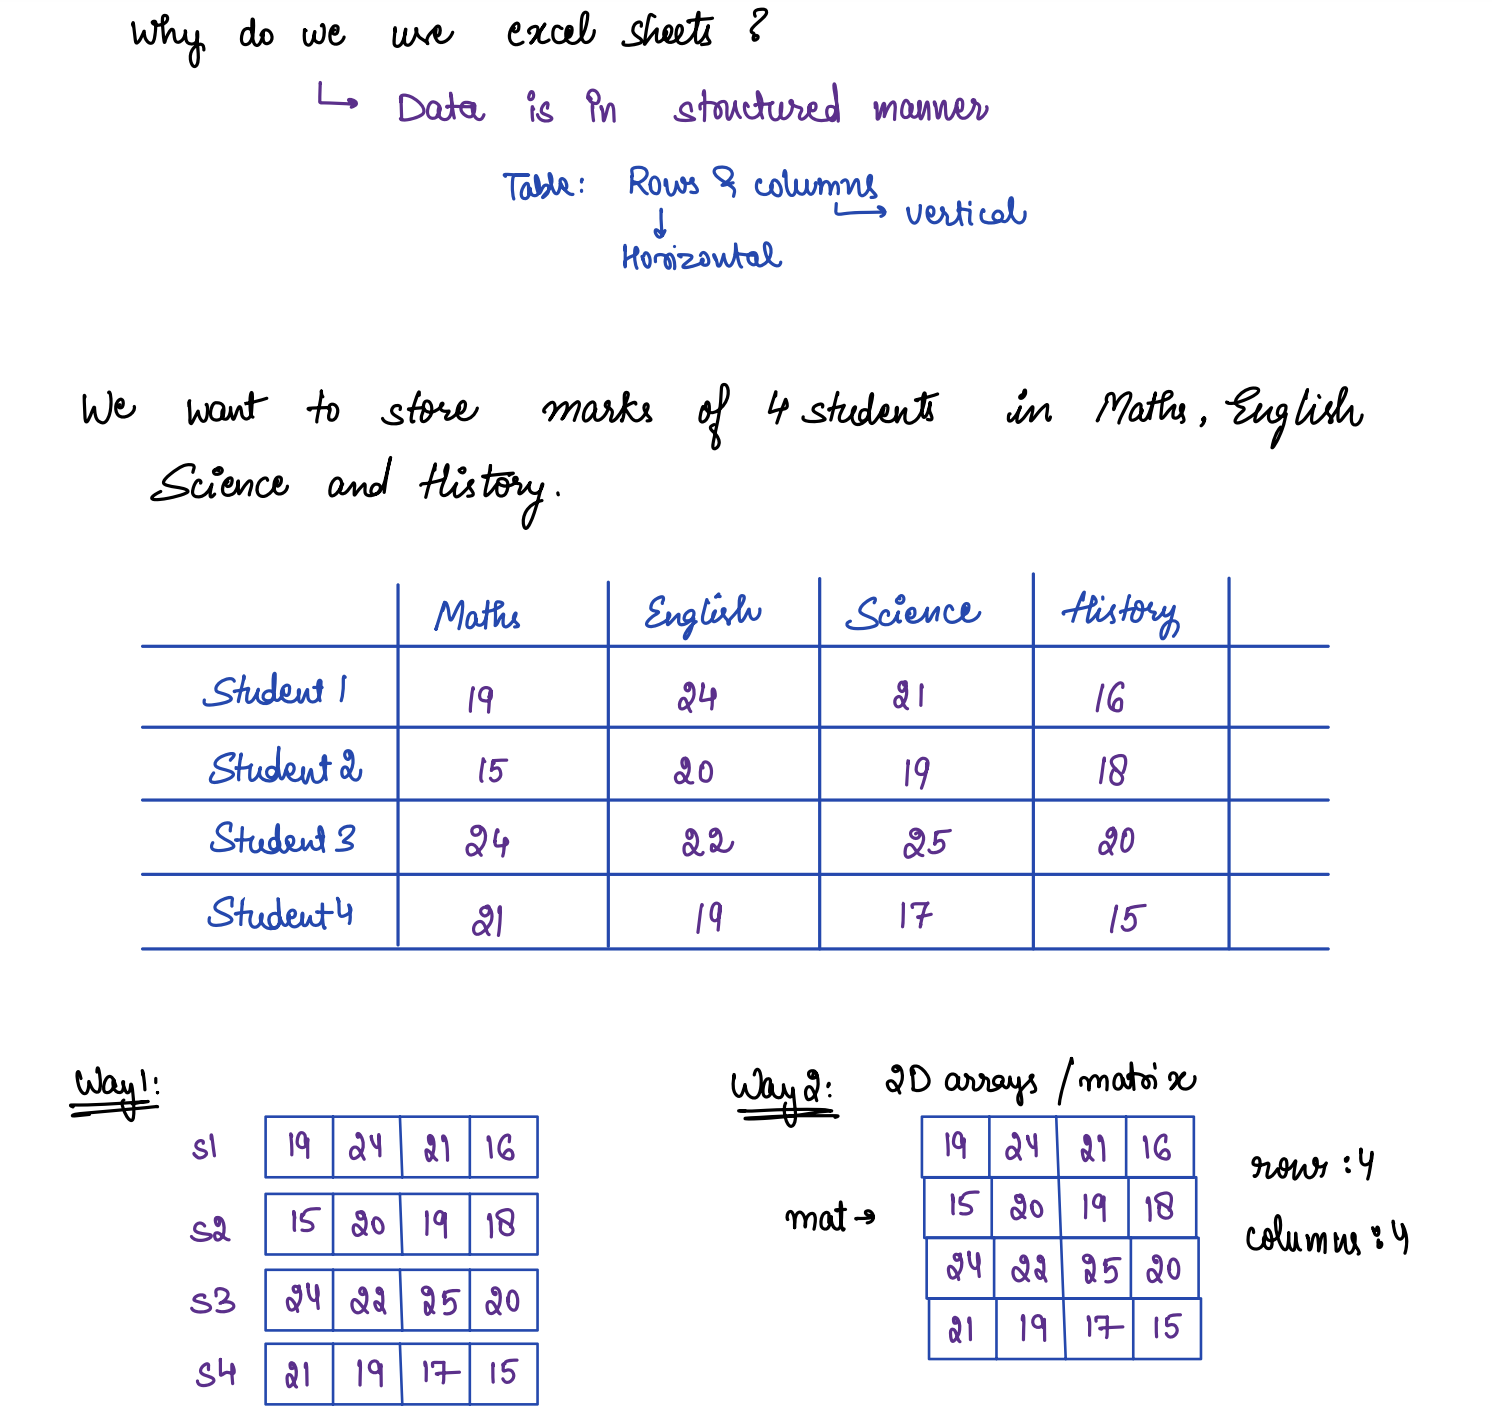 Why do we use excel sheets ?
Data is in structured manner
Table: Rows & columns
vertical
Horizontal
We want to store marks of 4 students in Maths, English
Science and History.
Maths English Science History
Student 1 19 24 21 16
Student 2 15 20 19 18
Student 3 24 22 25 20
Student 4 21 19 17 15
Way 1:
s1 19 24 21 16
s2 15 20 19 18
s3 24 22 25 20
s4 21 19 17 15
Way 2: 2D arrays / matrix
19 24 21 16
mat → 15 20 19 18
24 22 25 20
21 19 17 15
rows : 4
columns : 4